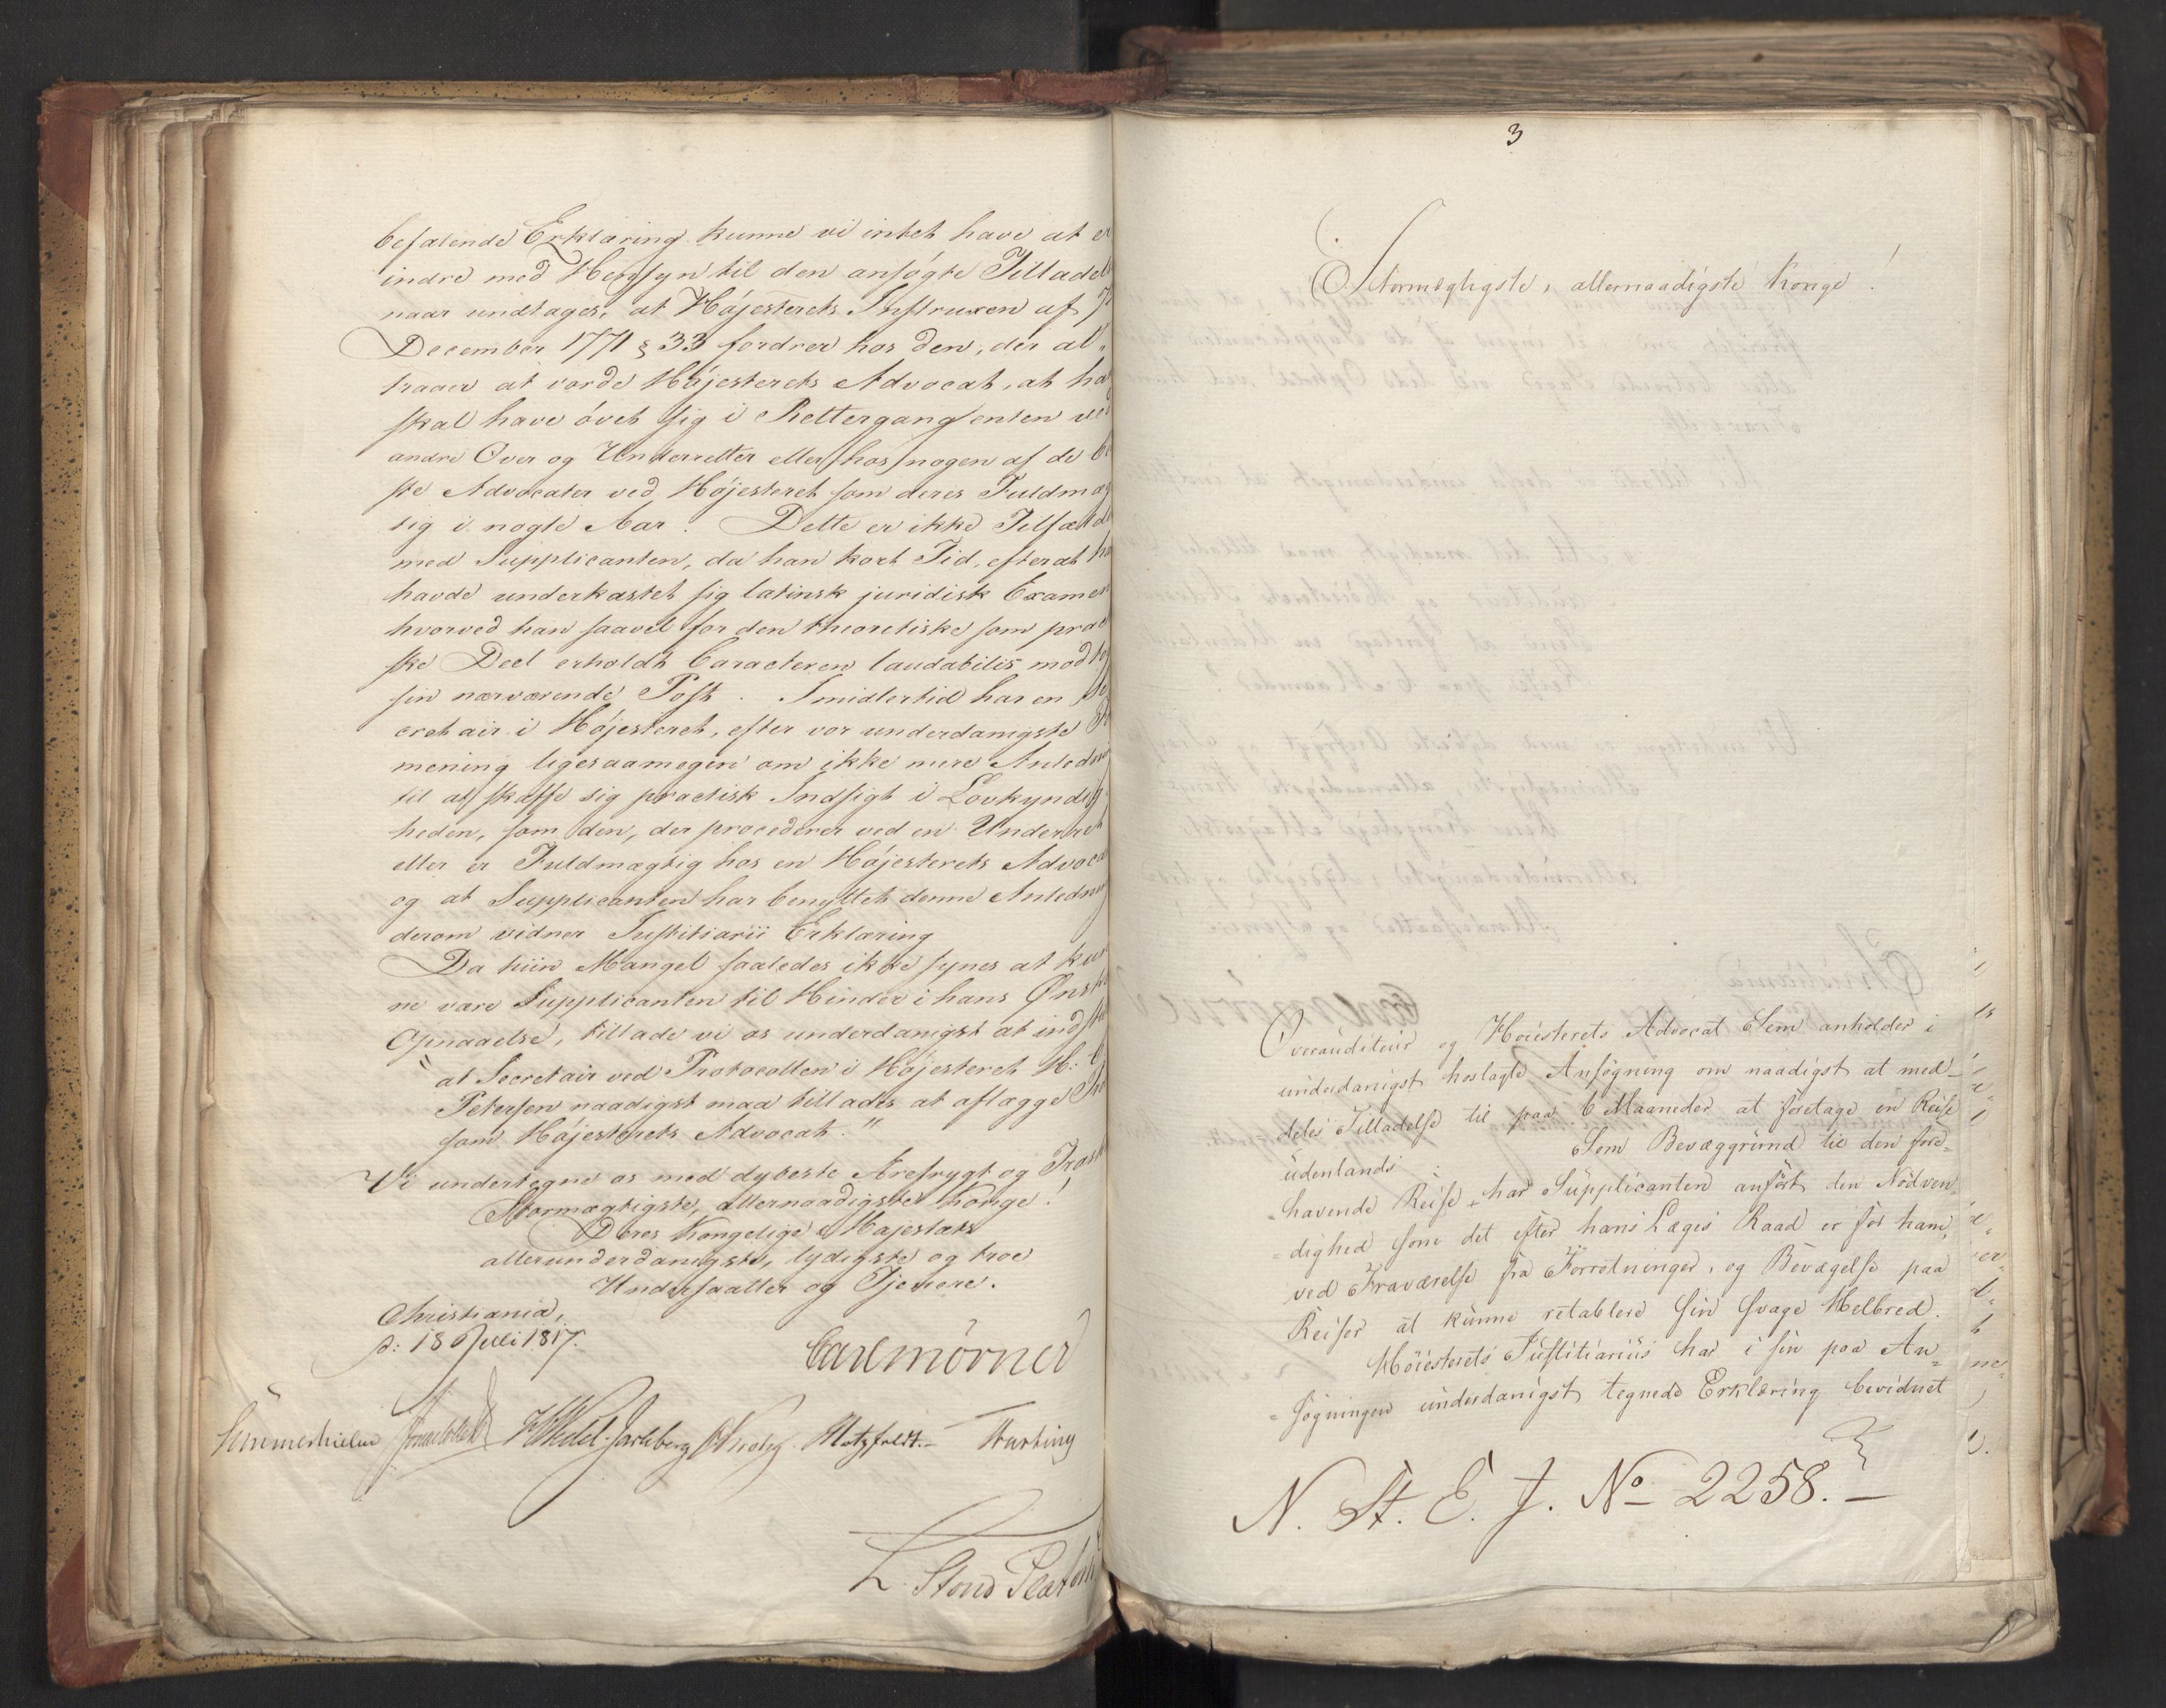 befalende Erklæring kunne vi intet have at er
indre med Hensyn til den ansøgte Tilladel
naar undtages, at Højesterets Instruxen af 7
December 1771 § 33 fordrer hos den, der at
traaer at vorde Højesterets Advocat, at ha
skal have øvet sig i Rettergang enten ved
andre Over og Underretter eller hos nogen af de be
ste Advocater ved Højesteret som deres Fuldmæg
tig i nogle Aar. Dette er ikke Tilfælde
med Supplicanten, da han kort Tid, efterat ha
havde underkastet sig latinsk juridisk Examen
hvorved han saavel for den theoretiske som prac
ske Deel erholdt Caracteren laudabilis modtog
sin nærværende Post. Imidlertid har en Se
cretair i Højesteret, efter vor underdanigste For
mening ligesaamegen om ikke mere Anledn
til at skaffe sig practisk Indsigt i Lovkyndig
heden, som den, der procederer ved en Underret
eller er Fuldmægtig hos en Højesterets Advoca
og at Supplicanten har benyttet denne Anledn
derom vidner Justitiarii Erklæring
Da hiin Mangel saaledes ikke synes at kun
ne være Supplicanten til Hinder i hans Ønske
Opnaaelse, tillade vi os underdanigst at indstil
"at Secretair ved Protocollen i Højesteret H. C
Petersen naadigst maa tillades at aflægge Prø
som Højesterets Advocat."
Vi undertegne os med dybeste Ærefrygt og Trosk
Stormægtigste, allernaadigste Konge!
Deres Kongelige Majestæts
allerunderdanigste, lydigste og troe
Undersaatter og Tjenere.
Christiania,
d: 18 Julii 1817.
Carl Mörner
Sommerhielm HWedel-Jarlsberg CKrohg Motzfeldt.
L. Stoud Platou
3
Stormægtigste, allernaadigste Konge!
Overauditeur og Høiesterets Advocat Sem anholder i
underdanigst hoslagte Ansøgning om naadigst at med-
deles Tilladelse til paa 6 Maaneder at foretage en Reise
udenlands. Som Bevæggrund til den fore-
havende Reise, har Supplicanten anført den Nødven-
dighed som det efter hans Læges Raad er for ham,
ved Fraværelse fra Forretninger, og Bevægelse paa
Reiser at kunne retablere sin svage Helbred.
Høiesterets Justitiarius har i sin paa An-
søgningen underdanigst tegnede Erklæring bevidnet
N. St. E. J. No 2258.